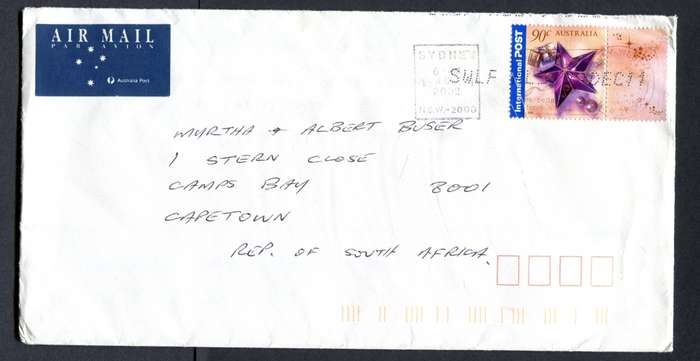 AIR MAIL
PAR AVION
Australia Post
SYDNEY
2002
N.S.W.-2000
SWLF
DEC11
International POST
90c AUSTRALIA
MYRTHA + ALBERT BUSER
1 STERN CLOSE
CAMPS BAY 8001
CAPETOWN
REP. OF SOUTH AFRICA.